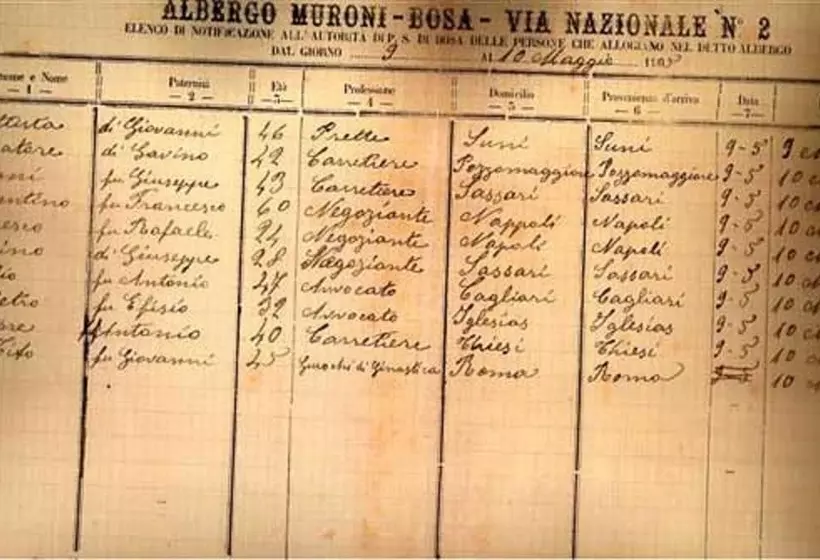 ALBERGO MURONI-BOSA - VIA NAZIONALE N° 2
ELENCO DI NOTIFICAZIONE ALL'AUTORITÀ DI P. S. DI BOSA DELLE PERSONE CHE ALLOGIANO NEL DETTO ALBERGO
DAL GIORNO 9 AL 10 Maggio
e Nome Paternità Età Professione Domicilio Provenienza d'arrivo Data
— 1 — — 2 — — 3 — — 4 — — 5 — — 6 — — 7 —
di Giovanni 46 Prette Suni Suni 9-5 9
di Gavino 42 Carretiere Pozzomaggiore Pozzomaggiore 9-5 10
fu Giuseppe 43 Carretiere Sassari Sassari 9-5 10
fu Francesco 60 Negoziante Nappoli Napoli 9-5 10
fu Rafaele 24 Negoziante Napoli Napoli 9-5 10
di Giuseppe 28 Negoziante Sassari Sassari 9-5 10
fu Antonio 47 Avvocato Cagliari Cagliari 9-5 10
fu Efisio 32 Avvocato Iglesias Iglesias 9-5 10
Antonio 40 Carretiere Thiesi Thiesi 9-5 10
fu Giovanni 45 di Ginastica Roma Roma 10